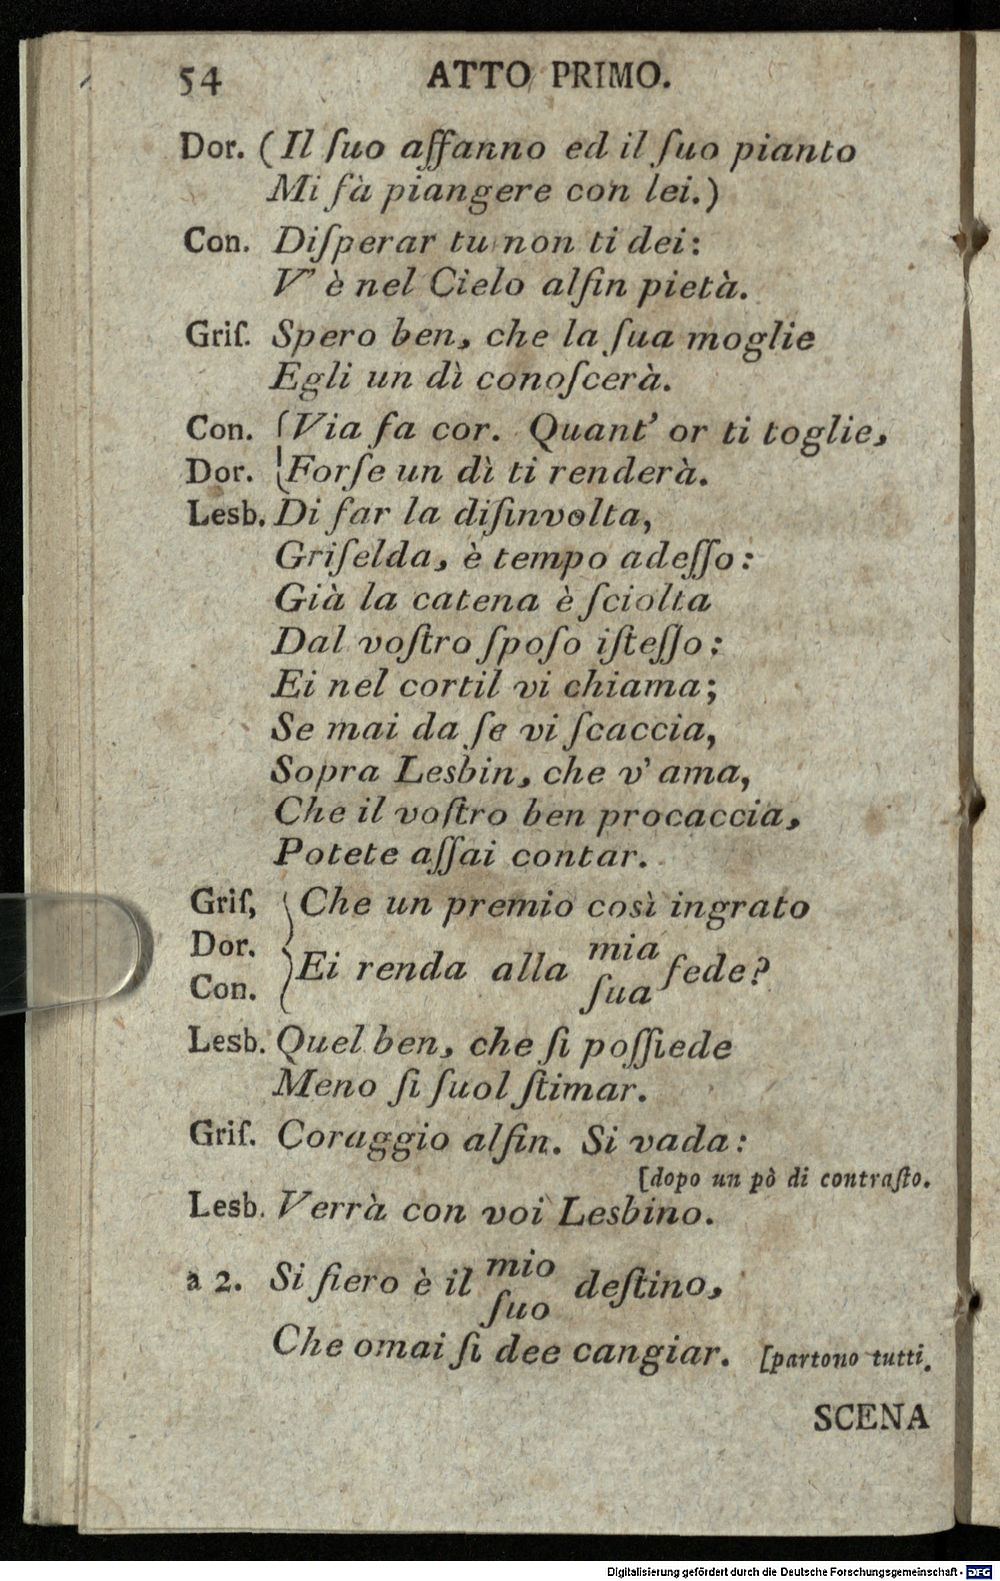 54 ATTO PRIMO.
Dor. (Il ſuo affanno ed il ſuo pianto
Mi fà piangere con lei.)
Con. Diſperar tu non ti dei:
V' è nel Cielo alfin pietà.
Griſ. Spero ben, che la ſua moglie
Egli un dì conoſcerà.
Con. {Via fa cor. Quant' or ti toglie,
Dor. {Forſe un dì ti renderà.
Lesb. Di far la diſinvolta,
Griſelda, è tempo adeſſo:
Già la catena è ſciolta
Dal voſtro ſpoſo iſteſſo:
Ei nel cortil vi chiama;
Se mai da ſe vi ſcaccia,
Sopra Lesbin, che v' ama,
Che il voſtro ben procaccia,
Potete aſſai contar.
Griſ, } Che un premio così ingrato
Dor.
Con. } Ei renda alla mia ſua fede?
Lesb. Quel ben, che ſi poſſiede
Meno ſi ſuol ſtimar.
Griſ. Coraggio alfin. Si vada:
[dopo un pò di contraſto.
Lesb. Verrà con voi Lesbino.
a 2. Si fiero è il mio ſuo deſtino,
Che omai ſi dee cangiar. [partono tutti.
SCENA
Digitalisierung gefördert durch die Deutsche Forschungsgemeinschaft - DFG